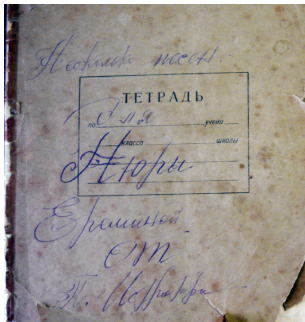 Несколько песен.
ТЕТРАДЬ
по Для учени
класса школы
Нюры
Ереминой
от